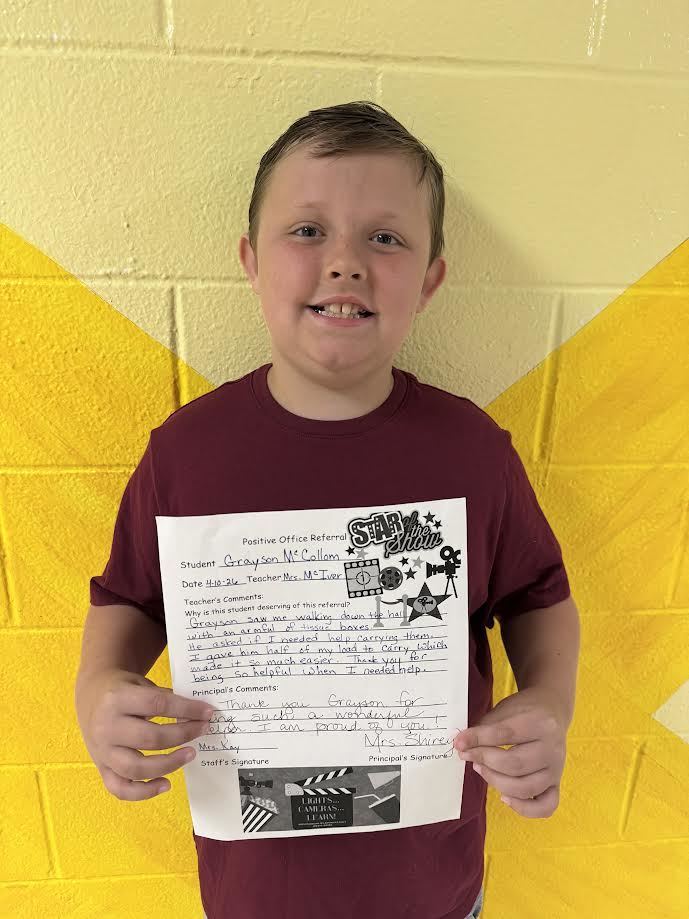 Positive Office Referral
STAR of the Show
Student Grayson McCollom
Date 4-10-26 Teacher Mrs. McIver
Teacher's Comments:
Why is this student deserving of this referral?
Grayson saw me walking down the hall
with an armful of tissue boxes.
He asked if I needed help carrying them.
I gave him half of my load to carry which
made it so much easier. Thank you for
being so helpful when I needed help.
Principal's Comments:
Thank you Grayson for
such a wonderful
I am proud of you!
Mrs. Kay Mrs. Shirey
Staff's Signature Principal's Signature
LIGHTS...
CAMERAS...
LEARN!